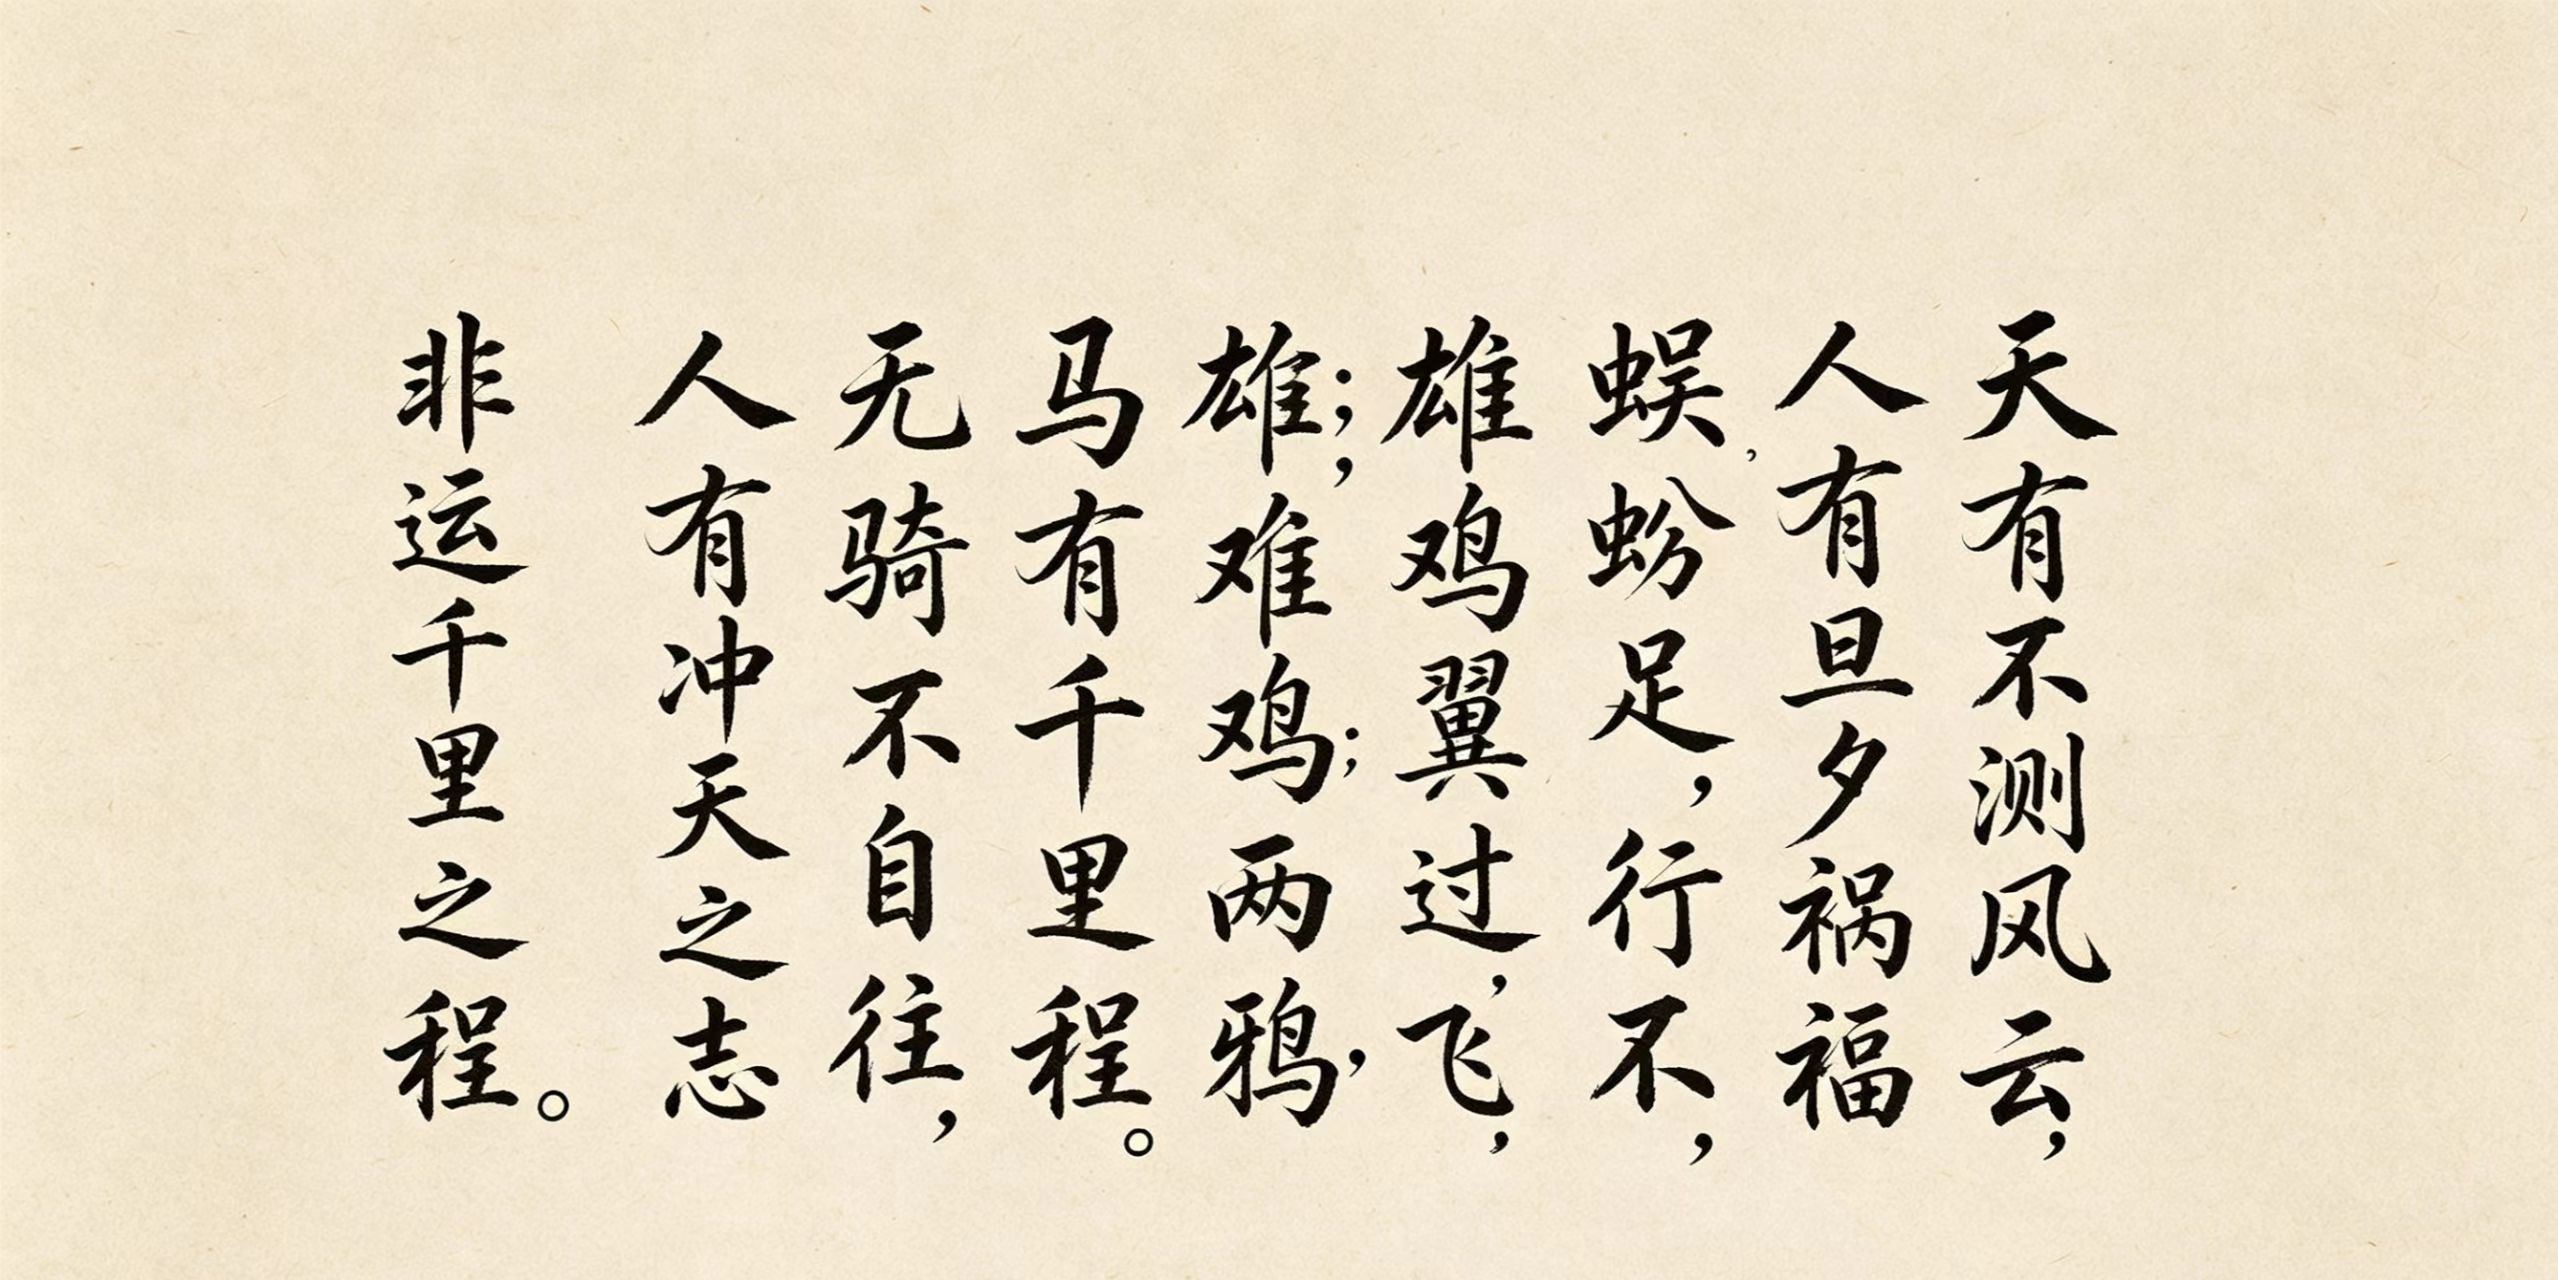 天有不测风云，
人有旦夕祸福
蜈，蚣足，行不，
雄鸡翼过，飞，
雄；，难鸡；两鸦，
马有千里程。
无骑不自往，
人有冲天之志
非运千里之程。